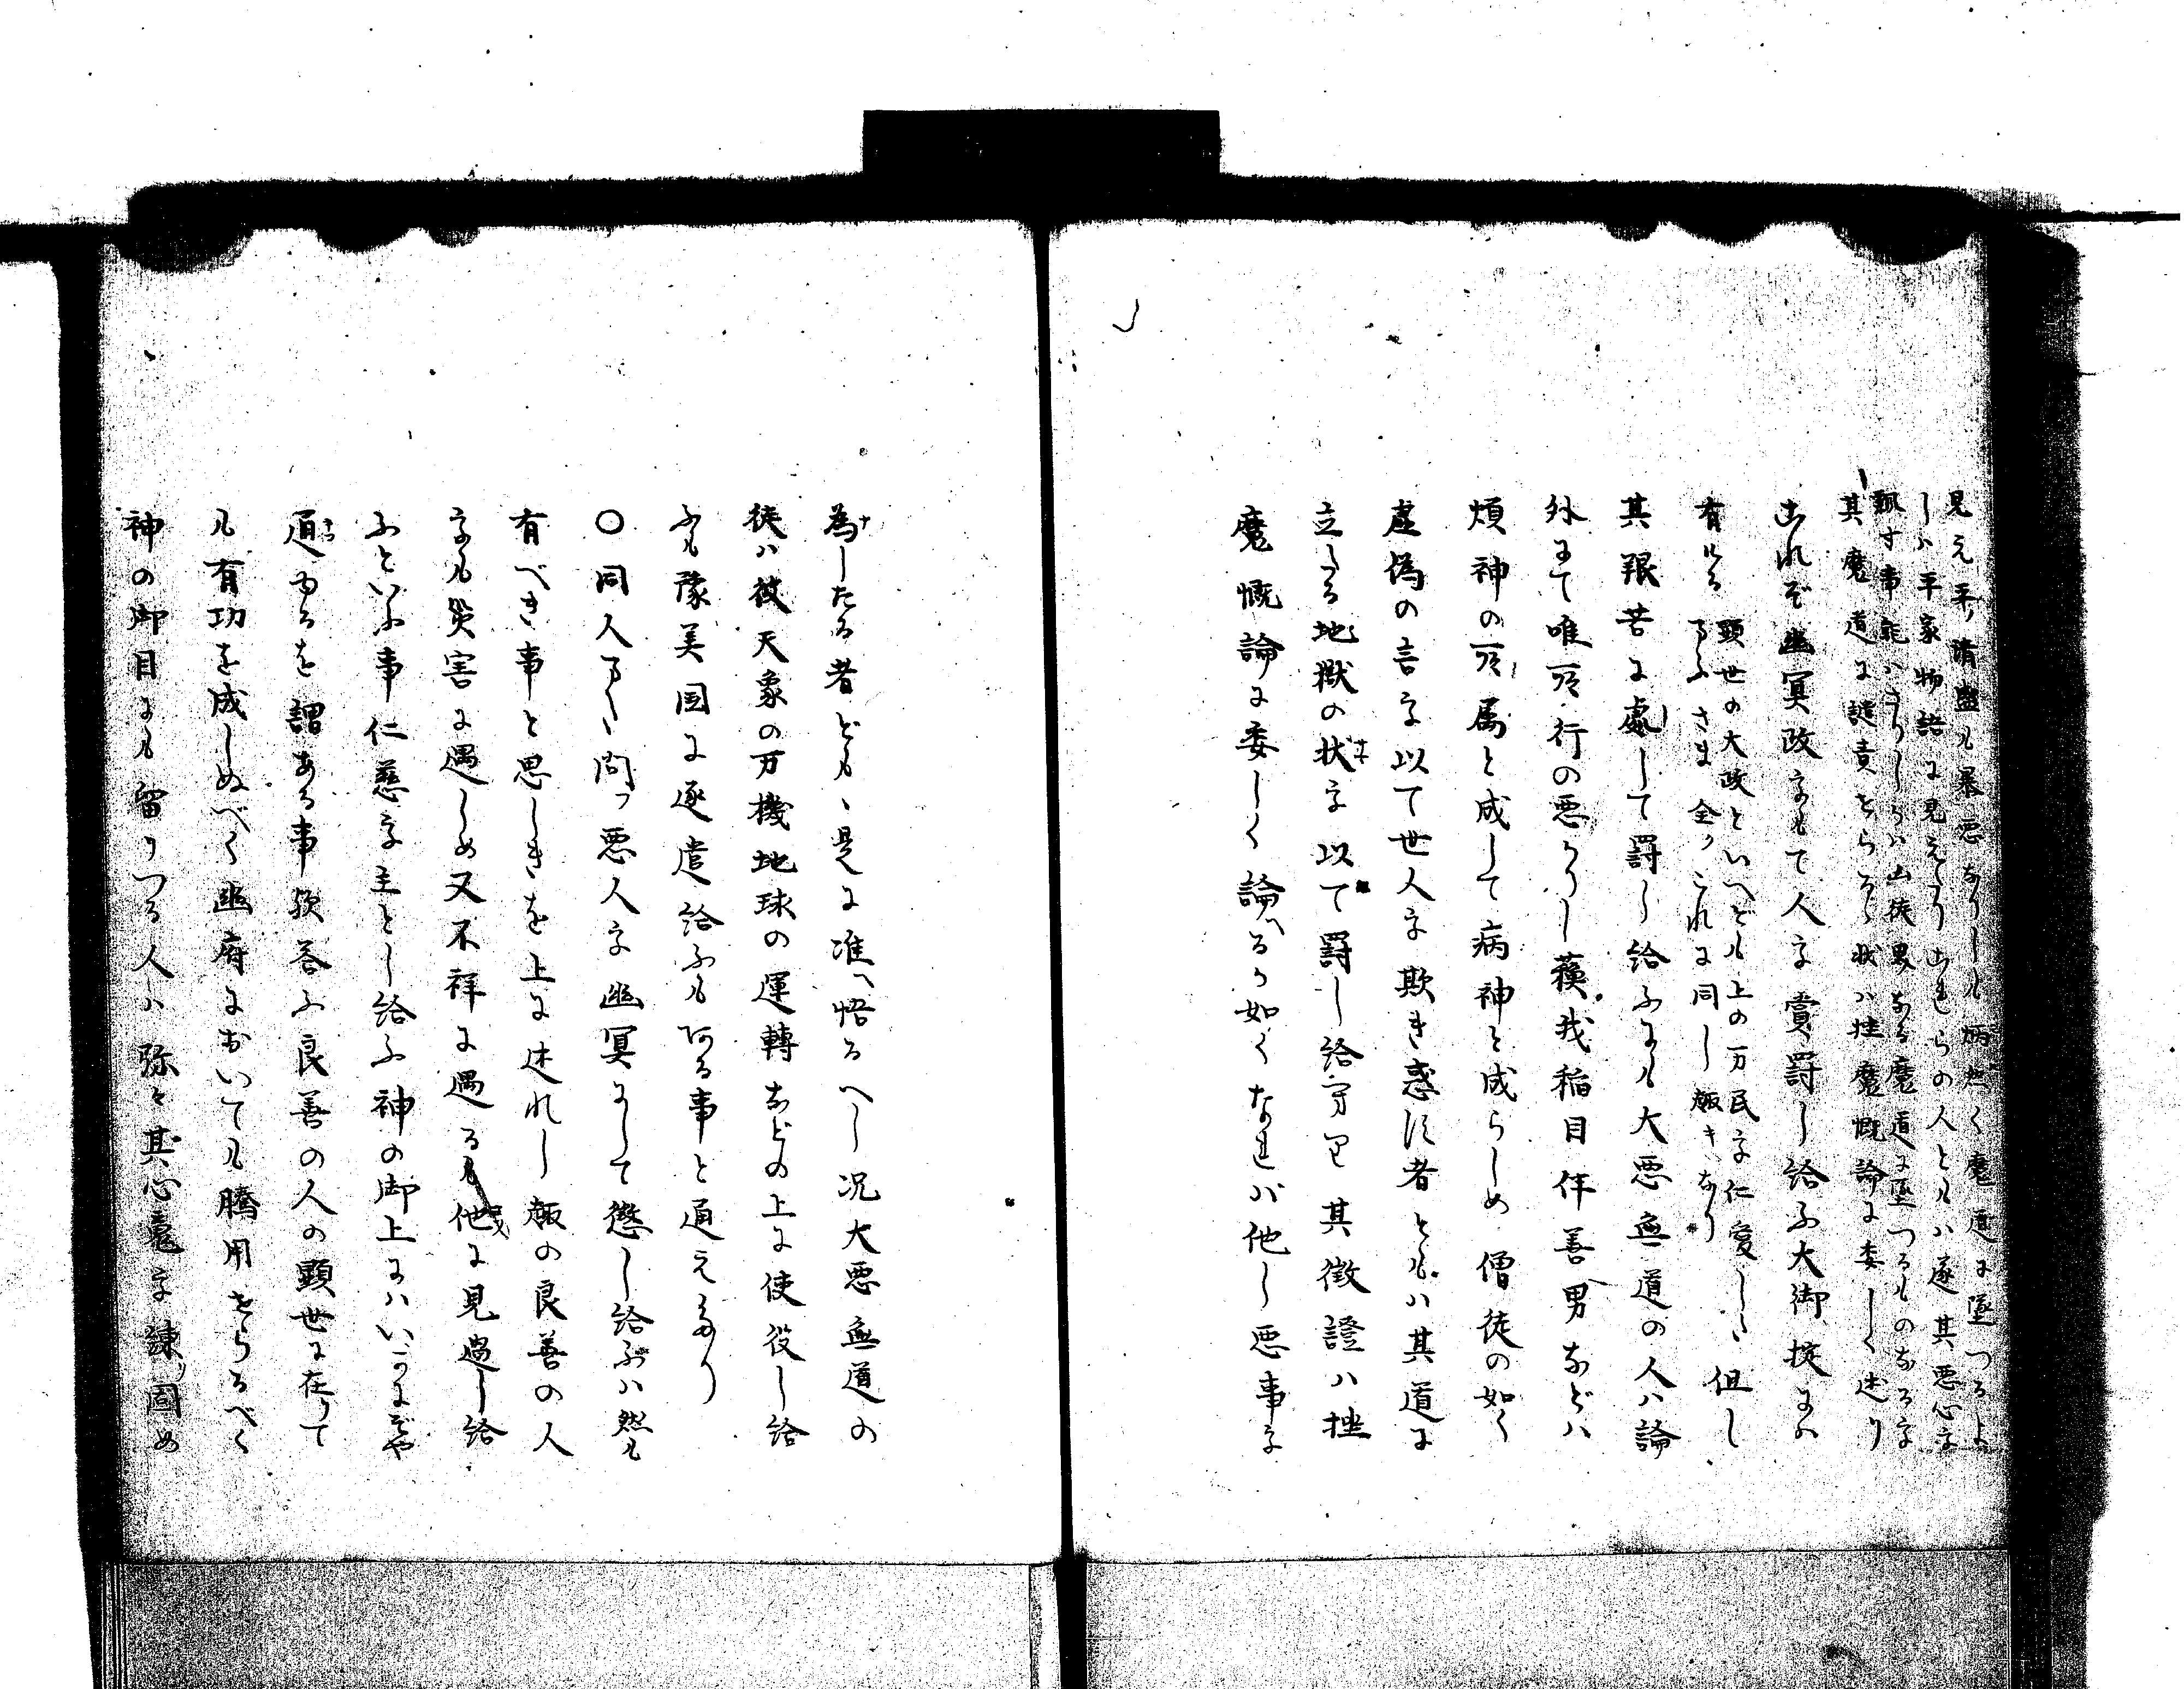 見え平ノ清盛も暴悪なりしも炳然く魔道に墜つるよ
しハ平家物語に見えたりこれらの人ともハ遂其悪心を
飜す事能ハさりしらハ山徒異なる魔道に墜つるものなるを
其魔道に譴責せらるゝ状ハ挫魔慨論に委しく述り
これぞ幽冥政をもて人を賞罰し給ふ大御掟にハ
有ける
顕世の大政といへども上の万民を仁愛しゝ但し
給ふさま全クこれに同し趣きなり
其艱苦に處して罰し給ふにも大悪無道の人ハ論
外にて唯所行の悪かりし蘓我稲目伴善男などハ
煩神の所属と成して病神と成らしめ僧徒の如く
虚偽の言を以て世人を欺き惑す者ともハ其道に
立たる地獄の状を以て罰し給ヘり其徴證ハ挫
魔慨論に委しく論へるか如くなれバ他し悪事を
為したる者ども是に准へ悟るへし况大悪無道の
徒ハ彼天象の万機地球の運轉などの上に使役し給
ふも豫美国に逐遣給ふも阿る事と通えたり
〇同人又問フ悪人を幽冥にして懲し給ふハ然も
有べき事と思しきを上に述れし趣の良善の人
をも災害に遇しめ又不祥に遇るも他に見過し給
ふといふ事仁慈を主とし給ふ神の御上にハいかにぞや
通ゆるを謂ある事歟答ふ良善の人の顕世に在りて
も有功を成しぬべく幽府においても騰用せらるべく
神の御目にも留りつる人ハ弥々其心竟を練り固め